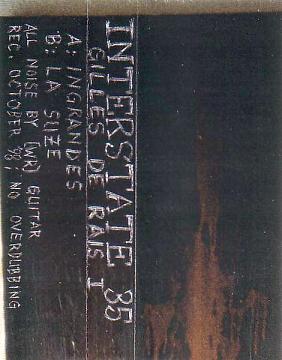 INTERSTATE 85
GILLES DE RAIS I
A: INGRANDES
B: LA SUZE
ALL NOISE BY (WR) GUITAR
REC. OCTOBER '98; NO OVERDUBBING